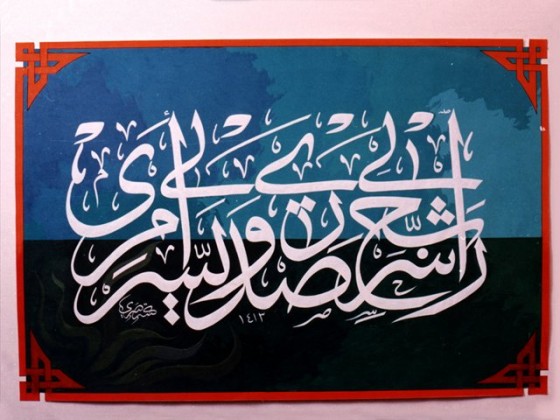 رب اشرح لي صدري ويسر لي أمري
١٤١٣